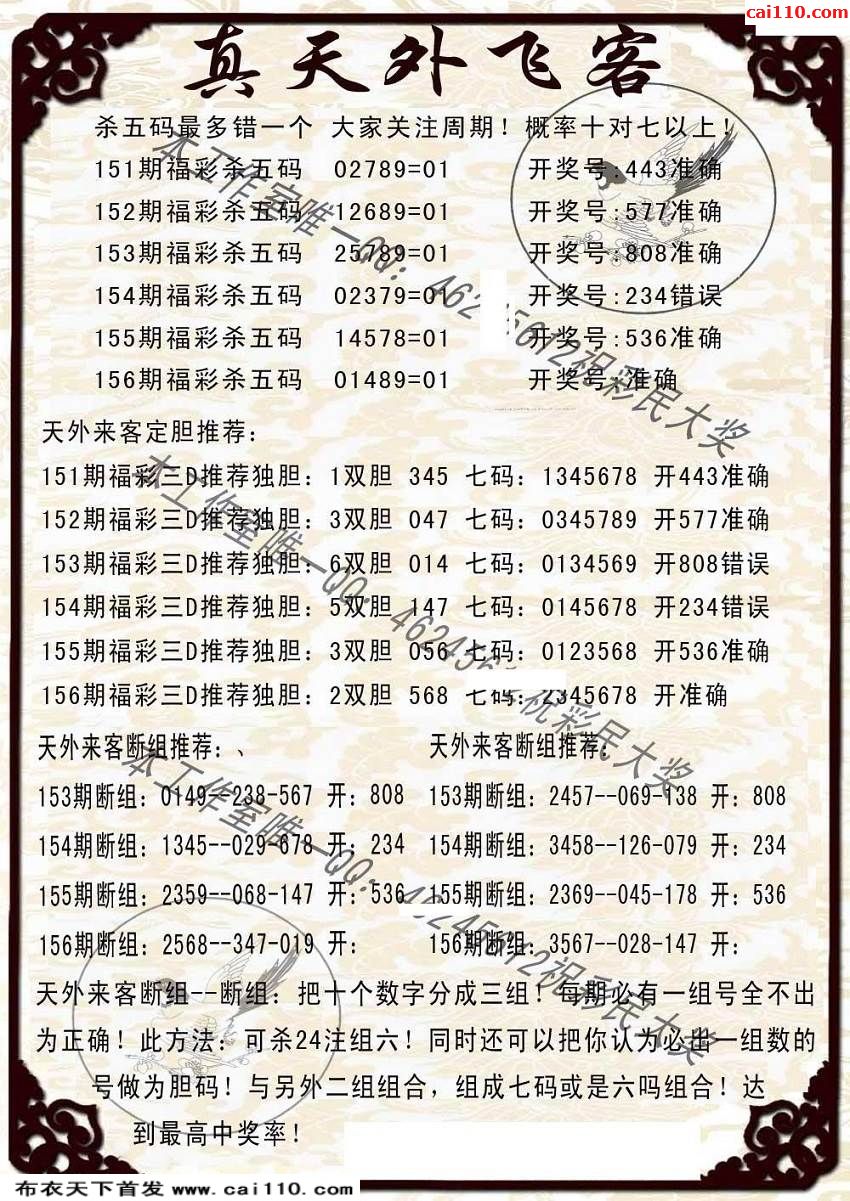 cai110.com
真天外飞客
杀五码最多错一个 大家关注周期！概率十对七以上！
151期福彩杀五码 02789=01 开奖号:443准确
152期福彩杀五码 12689=01 开奖号:577准确
153期福彩杀五码 25789=01 开奖号:808准确
154期福彩杀五码 02379=01 开奖号:234错误
155期福彩杀五码 14578=01 开奖号:536准确
156期福彩杀五码 01489=01 开奖号:准确
天外来客定胆推荐：
151期福彩三D推荐独胆：1双胆 345 七码：1345678 开443准确
152期福彩三D推荐独胆：3双胆 047 七码：0345789 开577准确
153期福彩三D推荐独胆：6双胆 014 七码：0134569 开808错误
154期福彩三D推荐独胆：5双胆 147 七码：0145678 开234错误
155期福彩三D推荐独胆：3双胆 056 七码：0123568 开536准确
156期福彩三D推荐独胆：2双胆 568 七码：2345678 开准确
天外来客断组推荐：、 天外来客断组推荐：
153期断组：0149--238-567 开：808 153期断组：2457--069-138 开：808
154期断组：1345--029-678 开：234 154期断组：3458--126-079 开：234
155期断组：2359--068-147 开：536 155期断组：2369--045-178 开：536
156期断组：2568--347-019 开： 156期断组：3567--028-147 开：
天外来客断组--断组：把十个数字分成三组！每期必有一组号全不出
为正确！此方法：可杀24注组六！同时还可以把你认为必出一组数的
号做为胆码！与另外二组组合，组成七码或是六吗组合！达
到最高中奖率！
本工作室唯一QQ：祝彩民大奖
本工作室唯一QQ：祝彩民大奖
本工作室唯一QQ：祝彩民大奖
布衣天下首发 www.cai110.com